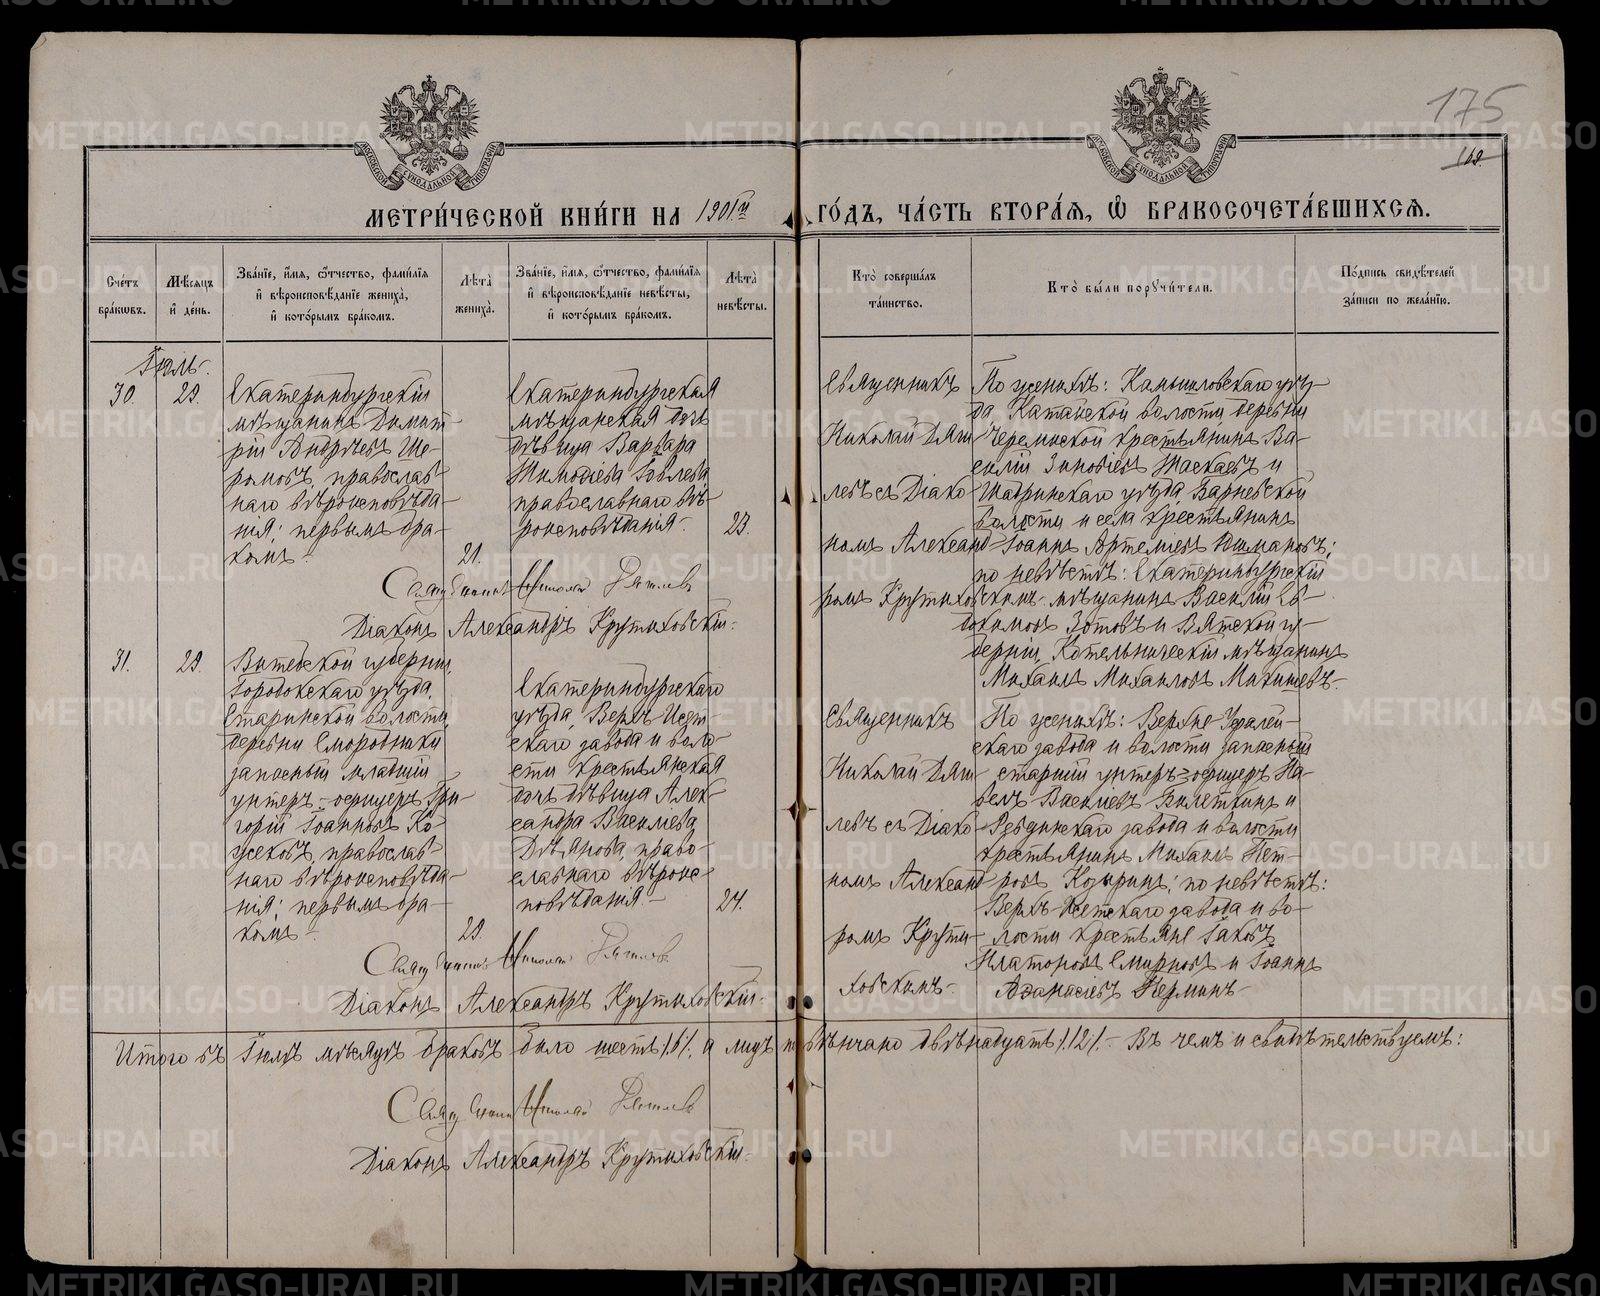 175
168.
МЕТРИ́ЧЕСКОЙ КНИ́ГИ НА 1901й ГО́ДЪ, ЧА́СТЬ ВТОРА́Я, Ѽ БРАКОСОЧЕТА́ВШИХСЯ.
Сче́тъ бра́кѡвъ.
Мѣ́сяцъ и҆ де́нь.
Зва́нїе, и҆́мя, ѻ҆́тчество, фами́лїя и҆ вѣроисповѣ́данїе жениха̀, и҆ кото́рымъ бра́комъ.
Лѣта̀ жениха̀.
Зва́нїе, и҆́мя, ѻ҆́тчество, фами́лїя и҆ вѣроисповѣ́данїе невѣ́сты, и҆ кото́рымъ бра́комъ.
Лѣта̀ невѣ́сты.
Кто̀ соверша́лъ та́инство.
Кто̀ бы́ли порꙋчи́тели.
По́дпись свидѣ́телей за́писи по жела́нїю.
Іюль.
30.
29.
Екатеринбургскій
мѣщанинъ Димит-
рій Андреевъ Ше-
ромовъ, православ-
наго вѣроисповѣда-
нія; первымъ бра-
комъ.
21.
Екатеринбургская
мѣщанская дочь
дѣвица Варвара
Тимоѳеева
православнаго вѣ-
роисповѣданія.
23.
Священникъ
Николай Дяги-
левъ съ Діако-
номъ Александ-
ромъ Крутиховскимъ.
По женихѣ: Камышловскаго уѣз-
да, Катайской волости, деревни
Черемисской крестьянинъ Ва-
силій Зиновіевъ Таскаевъ и
Шадринскаго уѣзда, Барневской
волости и села крестьянинъ
Іоаннъ Артеміевъ Юшмановъ;
по невѣстѣ: Екатеринбургскій
мѣщанинъ Василій Ев-
докимовъ Зотовъ и Вятской гу-
берніи, Котельническій мѣщанинъ
Михаилъ Михаиловъ Микишевъ.
Священникъ Николай Дягилевъ
Діаконъ Александръ Крутиховскій.
31.
29.
Витебской губерніи,
Городокскаго уѣзда,
Старинской волости,
деревни Смородники
запасный младшій
унтеръ-офицеръ Гри-
горій Іоанновъ Ко-
жековъ, православ-
наго вѣроисповѣда-
нія; первымъ бра-
комъ.
29.
Екатеринбургскаго
уѣзда, Верхъ-Исет-
скаго завода и воло-
сти крестьянская
дочь дѣвица Алек-
сандра Василіева
Дѣянова, право-
славнаго вѣроис-
повѣданія.
24.
Священникъ
Николай Дяги-
левъ съ Діако-
номъ Александ-
ромъ Крути-
ховскимъ.
По женихѣ: Верхне-Уфалей-
скаго завода и волости запасный
старшій унтеръ-офицеръ Па-
велъ Василіевъ Билеткинъ и
Ревдинскаго завода и волости
крестьянинъ Михаилъ Пет-
ровъ Козыринъ; по невѣстѣ:
Верхъ-Исетскаго завода и во-
лости крестьяне Іаковъ
Платоновъ Смирновъ и Іоаннъ
Аѳанасіевъ
Священникъ Николай Дягилевъ
Діаконъ Александръ Крутиховскій.
Итого въ Іюлѣ мѣсяцѣ браковъ было шесть /.6/. а лицъ повѣнчано двѣнадцать /.12/.- Въ чемъ и свидѣтельствуемъ:
Священникъ Николай Дягилевъ
Діаконъ Александръ Крутиховскій.
METRIKI.GASO-URAL.RU